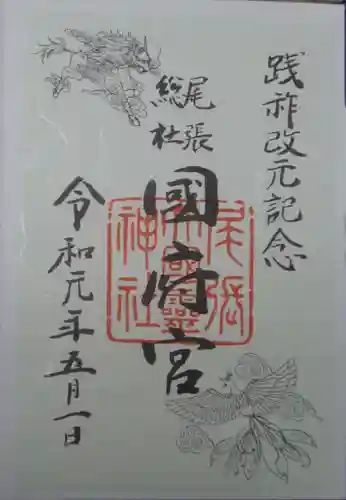 践祚改元記念
尾張
総社
國府宮
令和元年五月一日
尾張
大國霊
神社